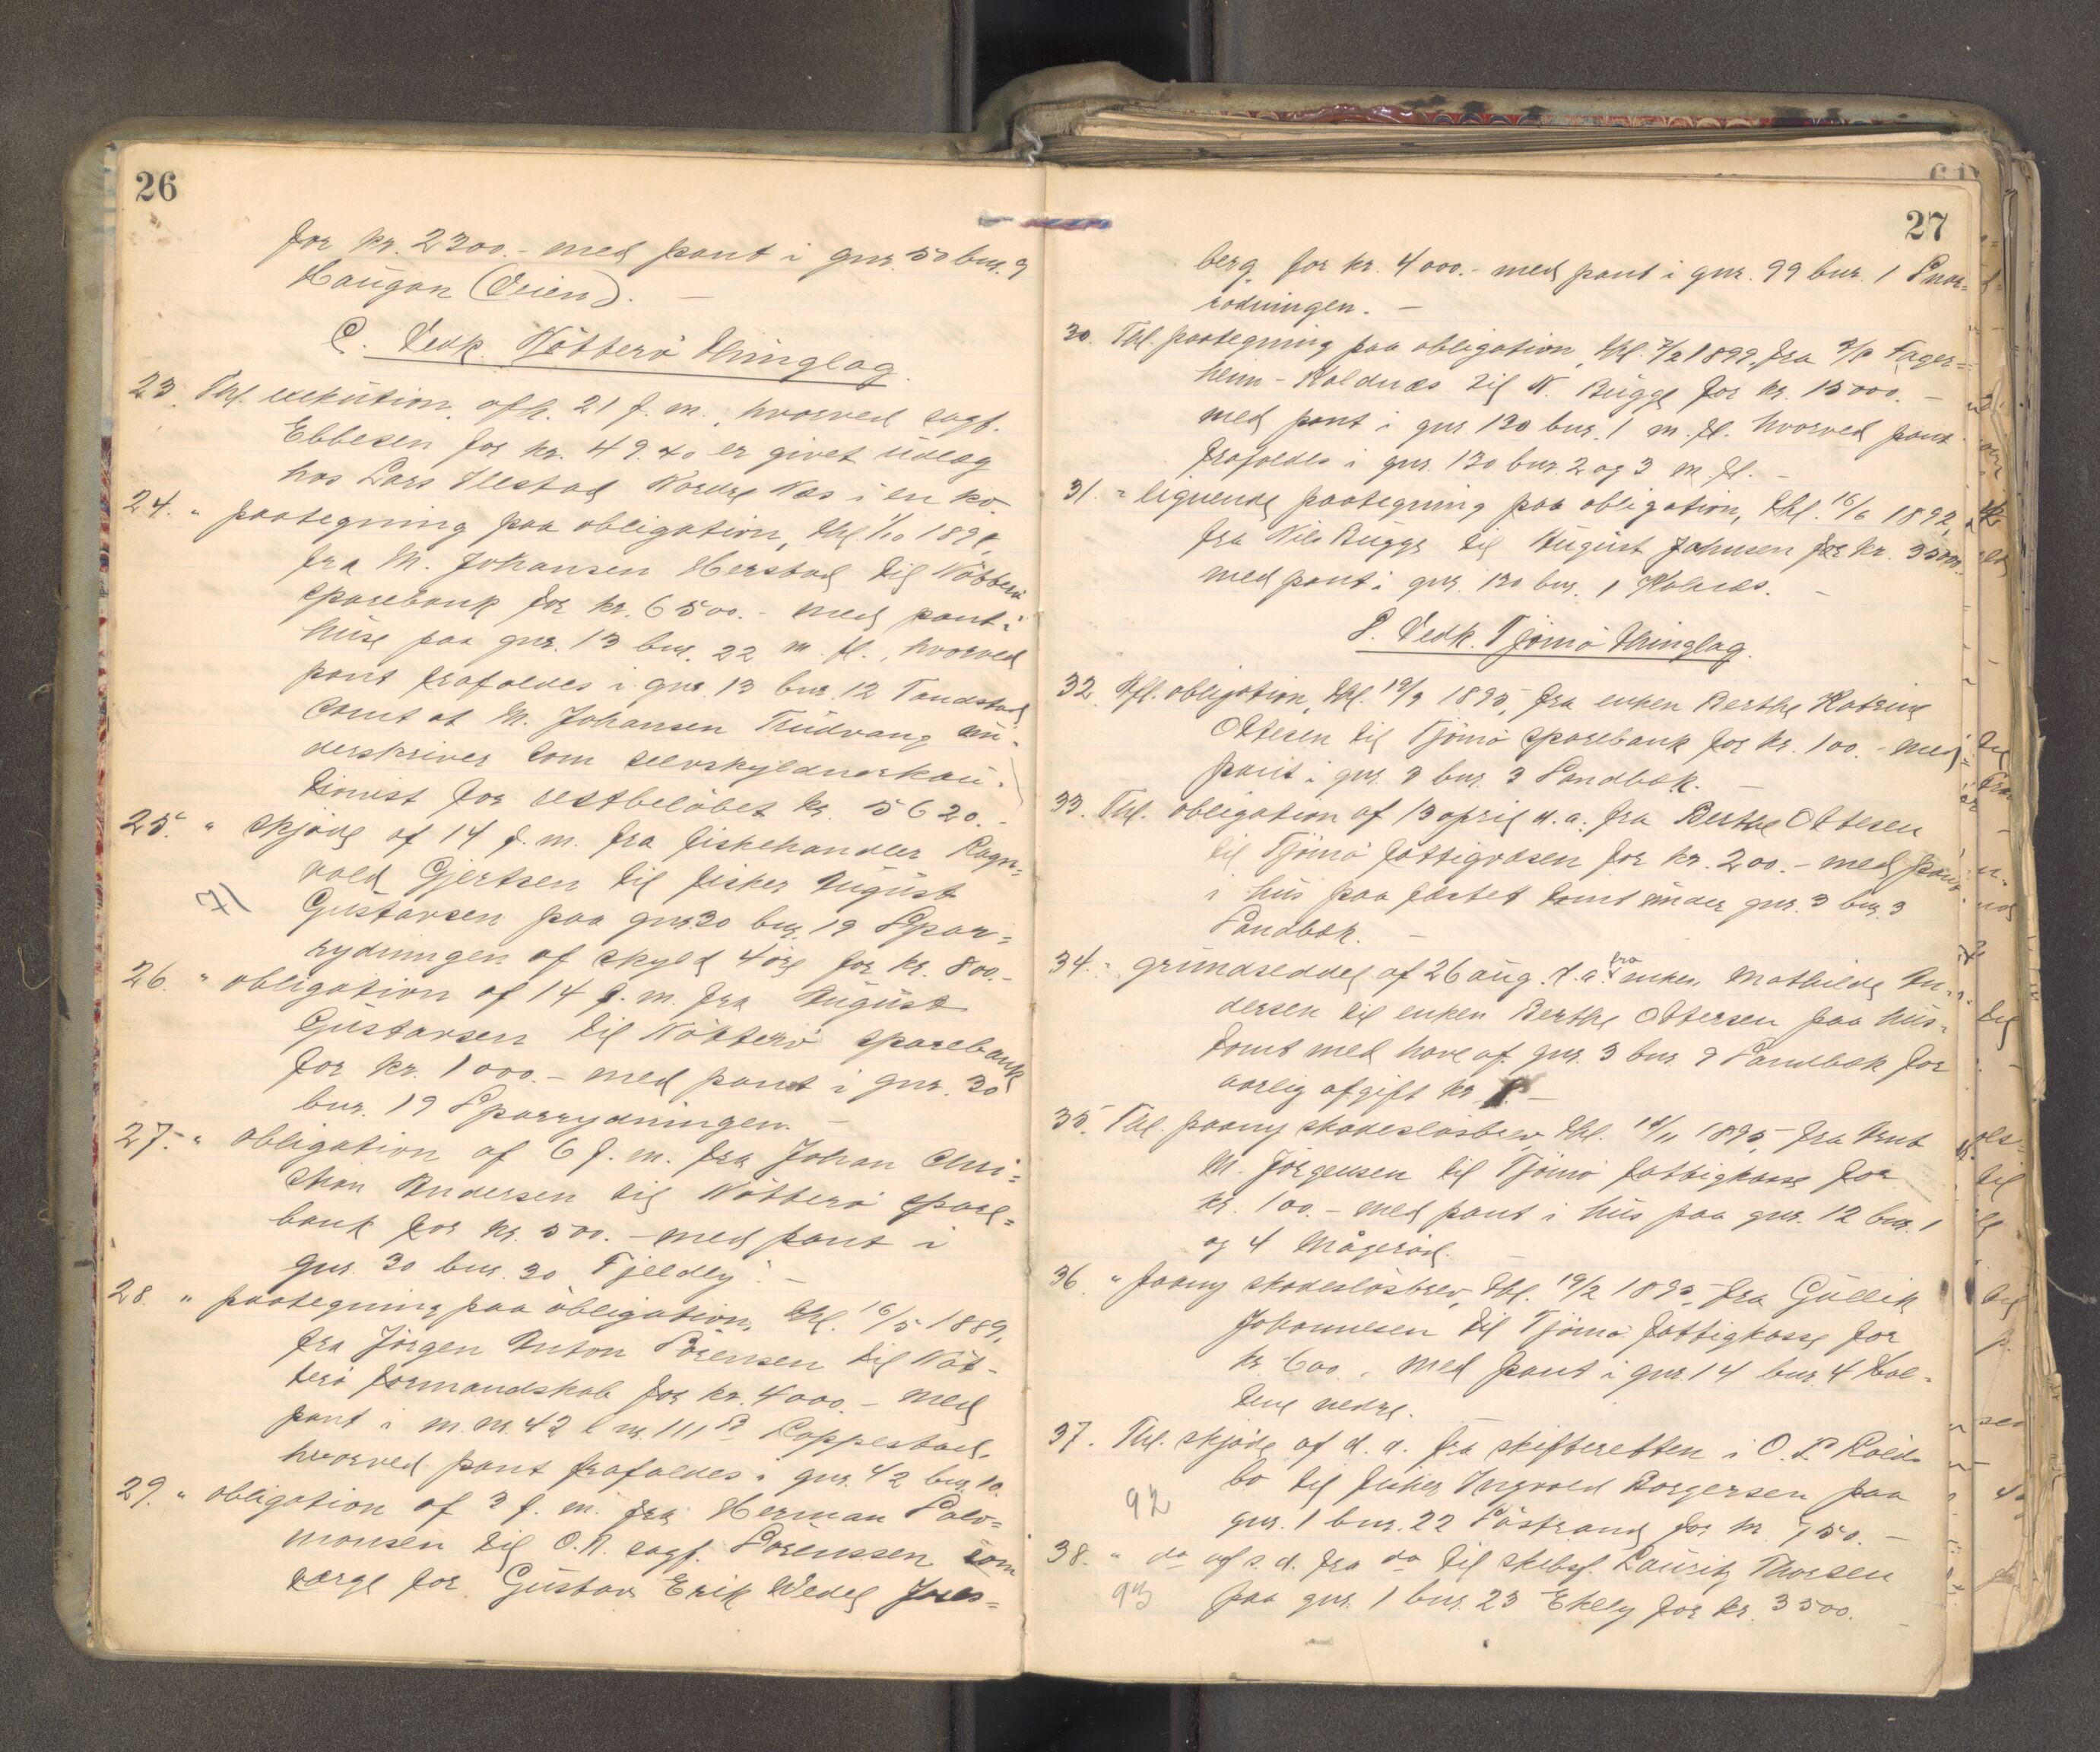 26
for kr. 2300.- med pant i gnr. 50 bnr. 9
Haugan (Veien). -
C. Vedk. Nötterö thinglag.
23. Thl. exekution, afh. 21 f. m., hvorved sagf.
Ebbesen for kr. 49.40 er givet udlæg
hos Lars Ilestad Nordre Næs i en ko.
24. " paategning paa obligation, thl. 1/10 189
fra M. Johansen Herstad til Nötterö
sparebank for kr. 6500.- med pant i
huse paa gnr. 13 bnr. 22 m. fl., hvorved
pant frafaldes i gnr. 13 bnr. 12 Tandstad
samt at M. Johansen Trudvang un-
derskriver som selvskyldnerkau-
tionist for restbelöbet kr. 5620.-
25. " skjöde af 14 f. m. fra fiskehandler Ragn-
vald Gjertsen til fisker August
71
Gustavsen paa gnr. 30 bnr. 19 Spar-
rydningen af skyld 4 öre for kr. 800.-
26. " obligation af 14 f. m. fra August
Gustavsen til Nötterö sparebank
for kr. 1000.- med pant i gnr. 30
bnr. 19 Sparrydningen. -
27. " obligation af 6 f. m. fra Johan Chri-
stian Andersen til Nötterö spare-
bank for kr. 500.- med pant i
gnr. 30 bnr. 30 Fjeldly. -
28. " paategning paa obligation, thl. 16/5 1889,
fra Jörgen Anton Sörensen til Nöt-
terö formandskab for kr. 4000.- med
pant i m. nr. 42 l. nr. 111 Roppestad,
hvorved pant frafaldes i gnr. 42 bnr. 10.
29. " obligation af 3 f. m. fra Herman Salo-
monsen til O.R. sagf. Sörenssen som
værge for Gustav Erik Wedel Jarls-
27
berg for kr. 4000.- med pant i gnr. 99 bnr. 1 Snar-
rödningen. -
30. Thl. paategning paa obligation, thl. 7/2 1899, fra Fager-
heim - Kaldnæs til N. Bugge for kr. 15000. -
med pant i gnr. 130 bnr. 1 m. fl. hvorved pant
frafaldes i gnr. 130 bnr. 2 og 3 m. fl. -
31. " lignende paategning paa obligation, thl. 16/6 1892,
fra Nils Bugge til August Johnsen for kr. 3500.
med pant i gnr. 130 bnr. 1 Kolnæs. -
D. Vedk. Tjömö thinglag.
32. Afl. obligation, thl. 19/9 1895, fra enken Berthe Katrine
Ottesen til Tjömö sparebank for kr. 100.- med
pant i gnr. 3 bnr. 3 Sandbæk. -
33. Thl. obligation af 13 april d. a. fra Berthe Ottesen
til Tjömö fattigvæsen for kr. 200.- med pant
i hus paa fæstet tomt under gnr. 3 bnr. 3
Sandbæk. -
34. " grundseddel af 26 aug. d. a. fra enken Mathilde An-
dersen til enken Berthe Ottersen paa hus-
tomt med have af gnr. 3 bnr. 9 Sandbæk for
aarlig afgift kr. -
35. Thl. paany skadeslösbrev, thl. 14/11 1895 fra Knut
M. Jörgensen til Tjömö fattigkasse for
kr. 100.- med pant i hus paa gnr. 12 bnr. 1
og 4 Mågeröd. -
36 " paany skadeslösbrev, thl. 19/2 1895, fra Gullik
Johannesen til Tjömö fattigkasse for
kr. 600., med pant i gnr. 14 bnr. 4 Hol-
tene nedre.
37. Thl. skjöde af d. d. fra skifteretten i O. P. Röeds
bo til fisker Ingvald Borgersen paa
92
gnr. 1 bnr. 22 Söstrand for kr. 750. -
38. " do af s. d. fra do til skibsf. Lauritz Thorsen
93
paa gnr. 1 bnr. 23 Ekely for kr. 3500. -